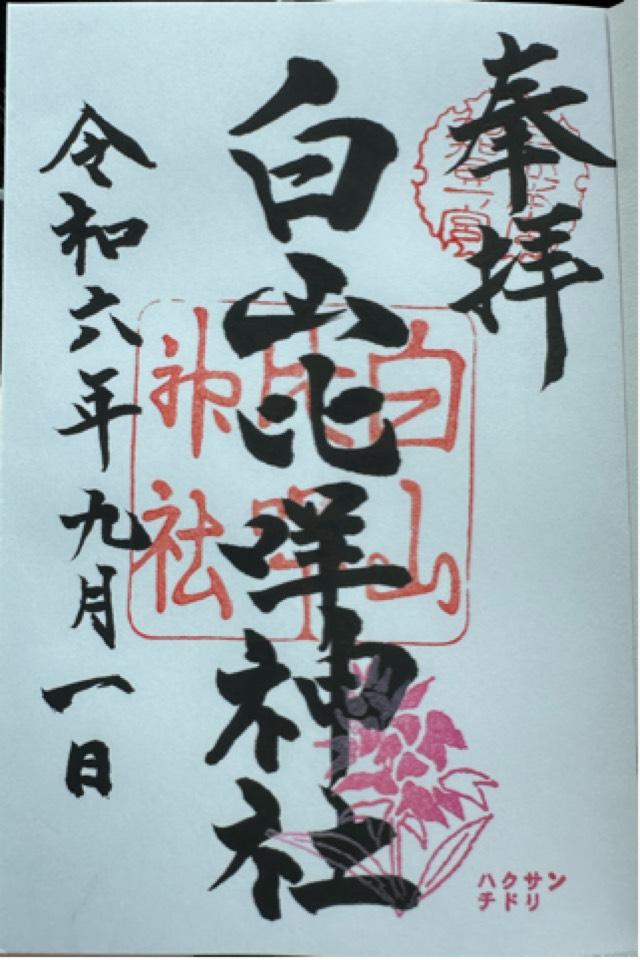 奉拝
白山比咩神社
令和六年九月一日
白山
神社
ハクサン
チドリ